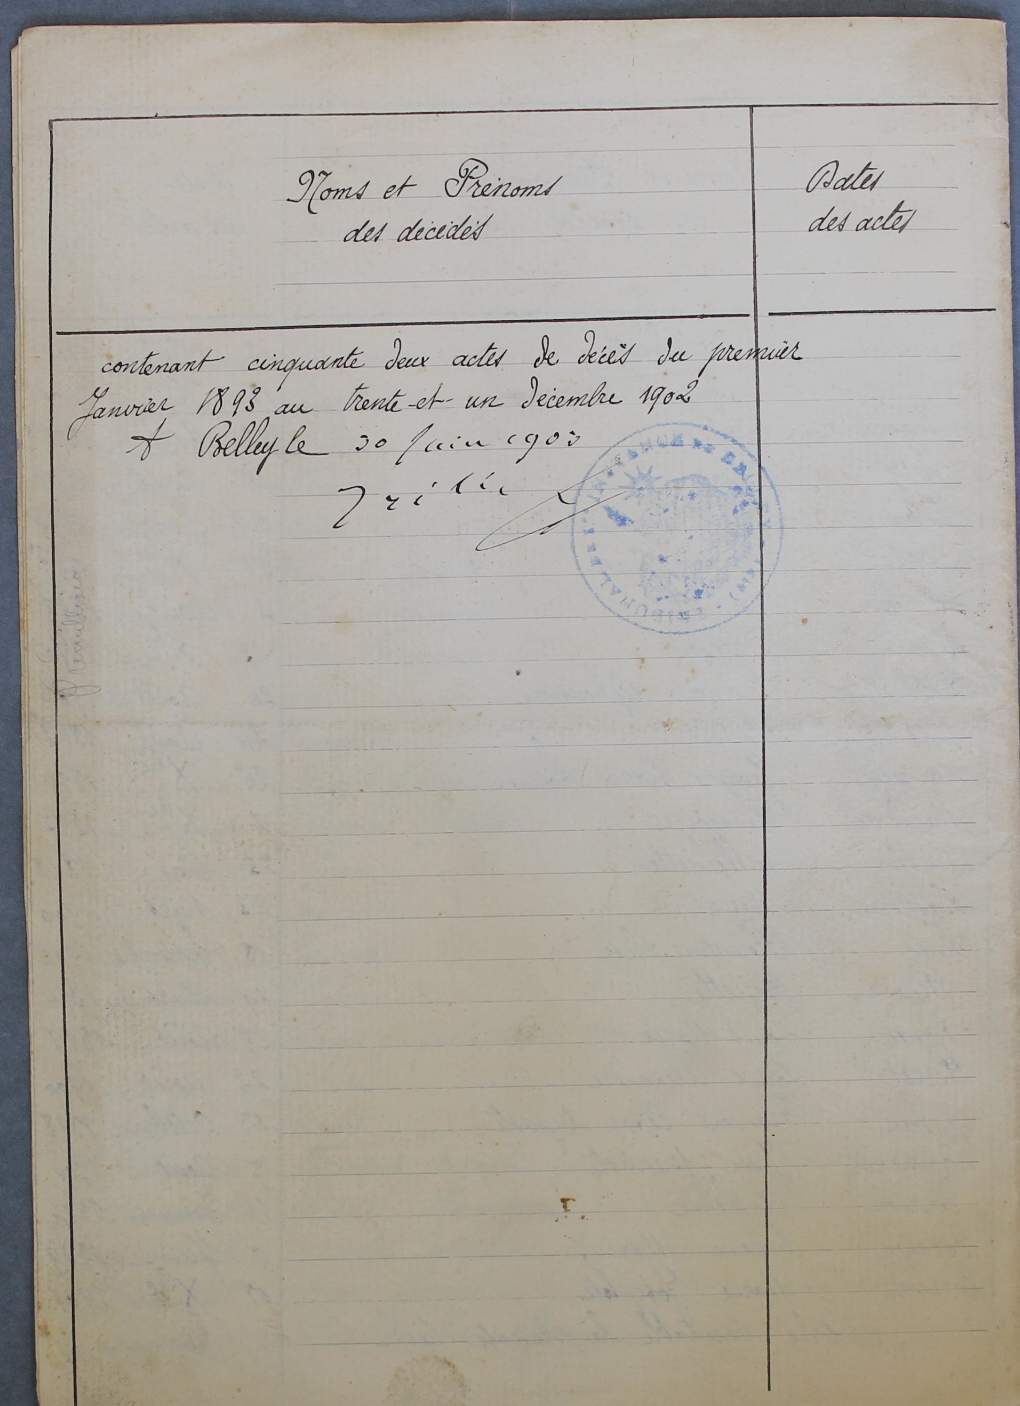 Noms et Prénoms
des décédés
Dates
des actes
contenant cinquante deux actes de décès du premier
Janvier 1893 au trente et un décembre 1902
Belley le 30 Juin 1903
TRIBUNAL DE 1ère INSTANCE DE BELLEY (AIN)